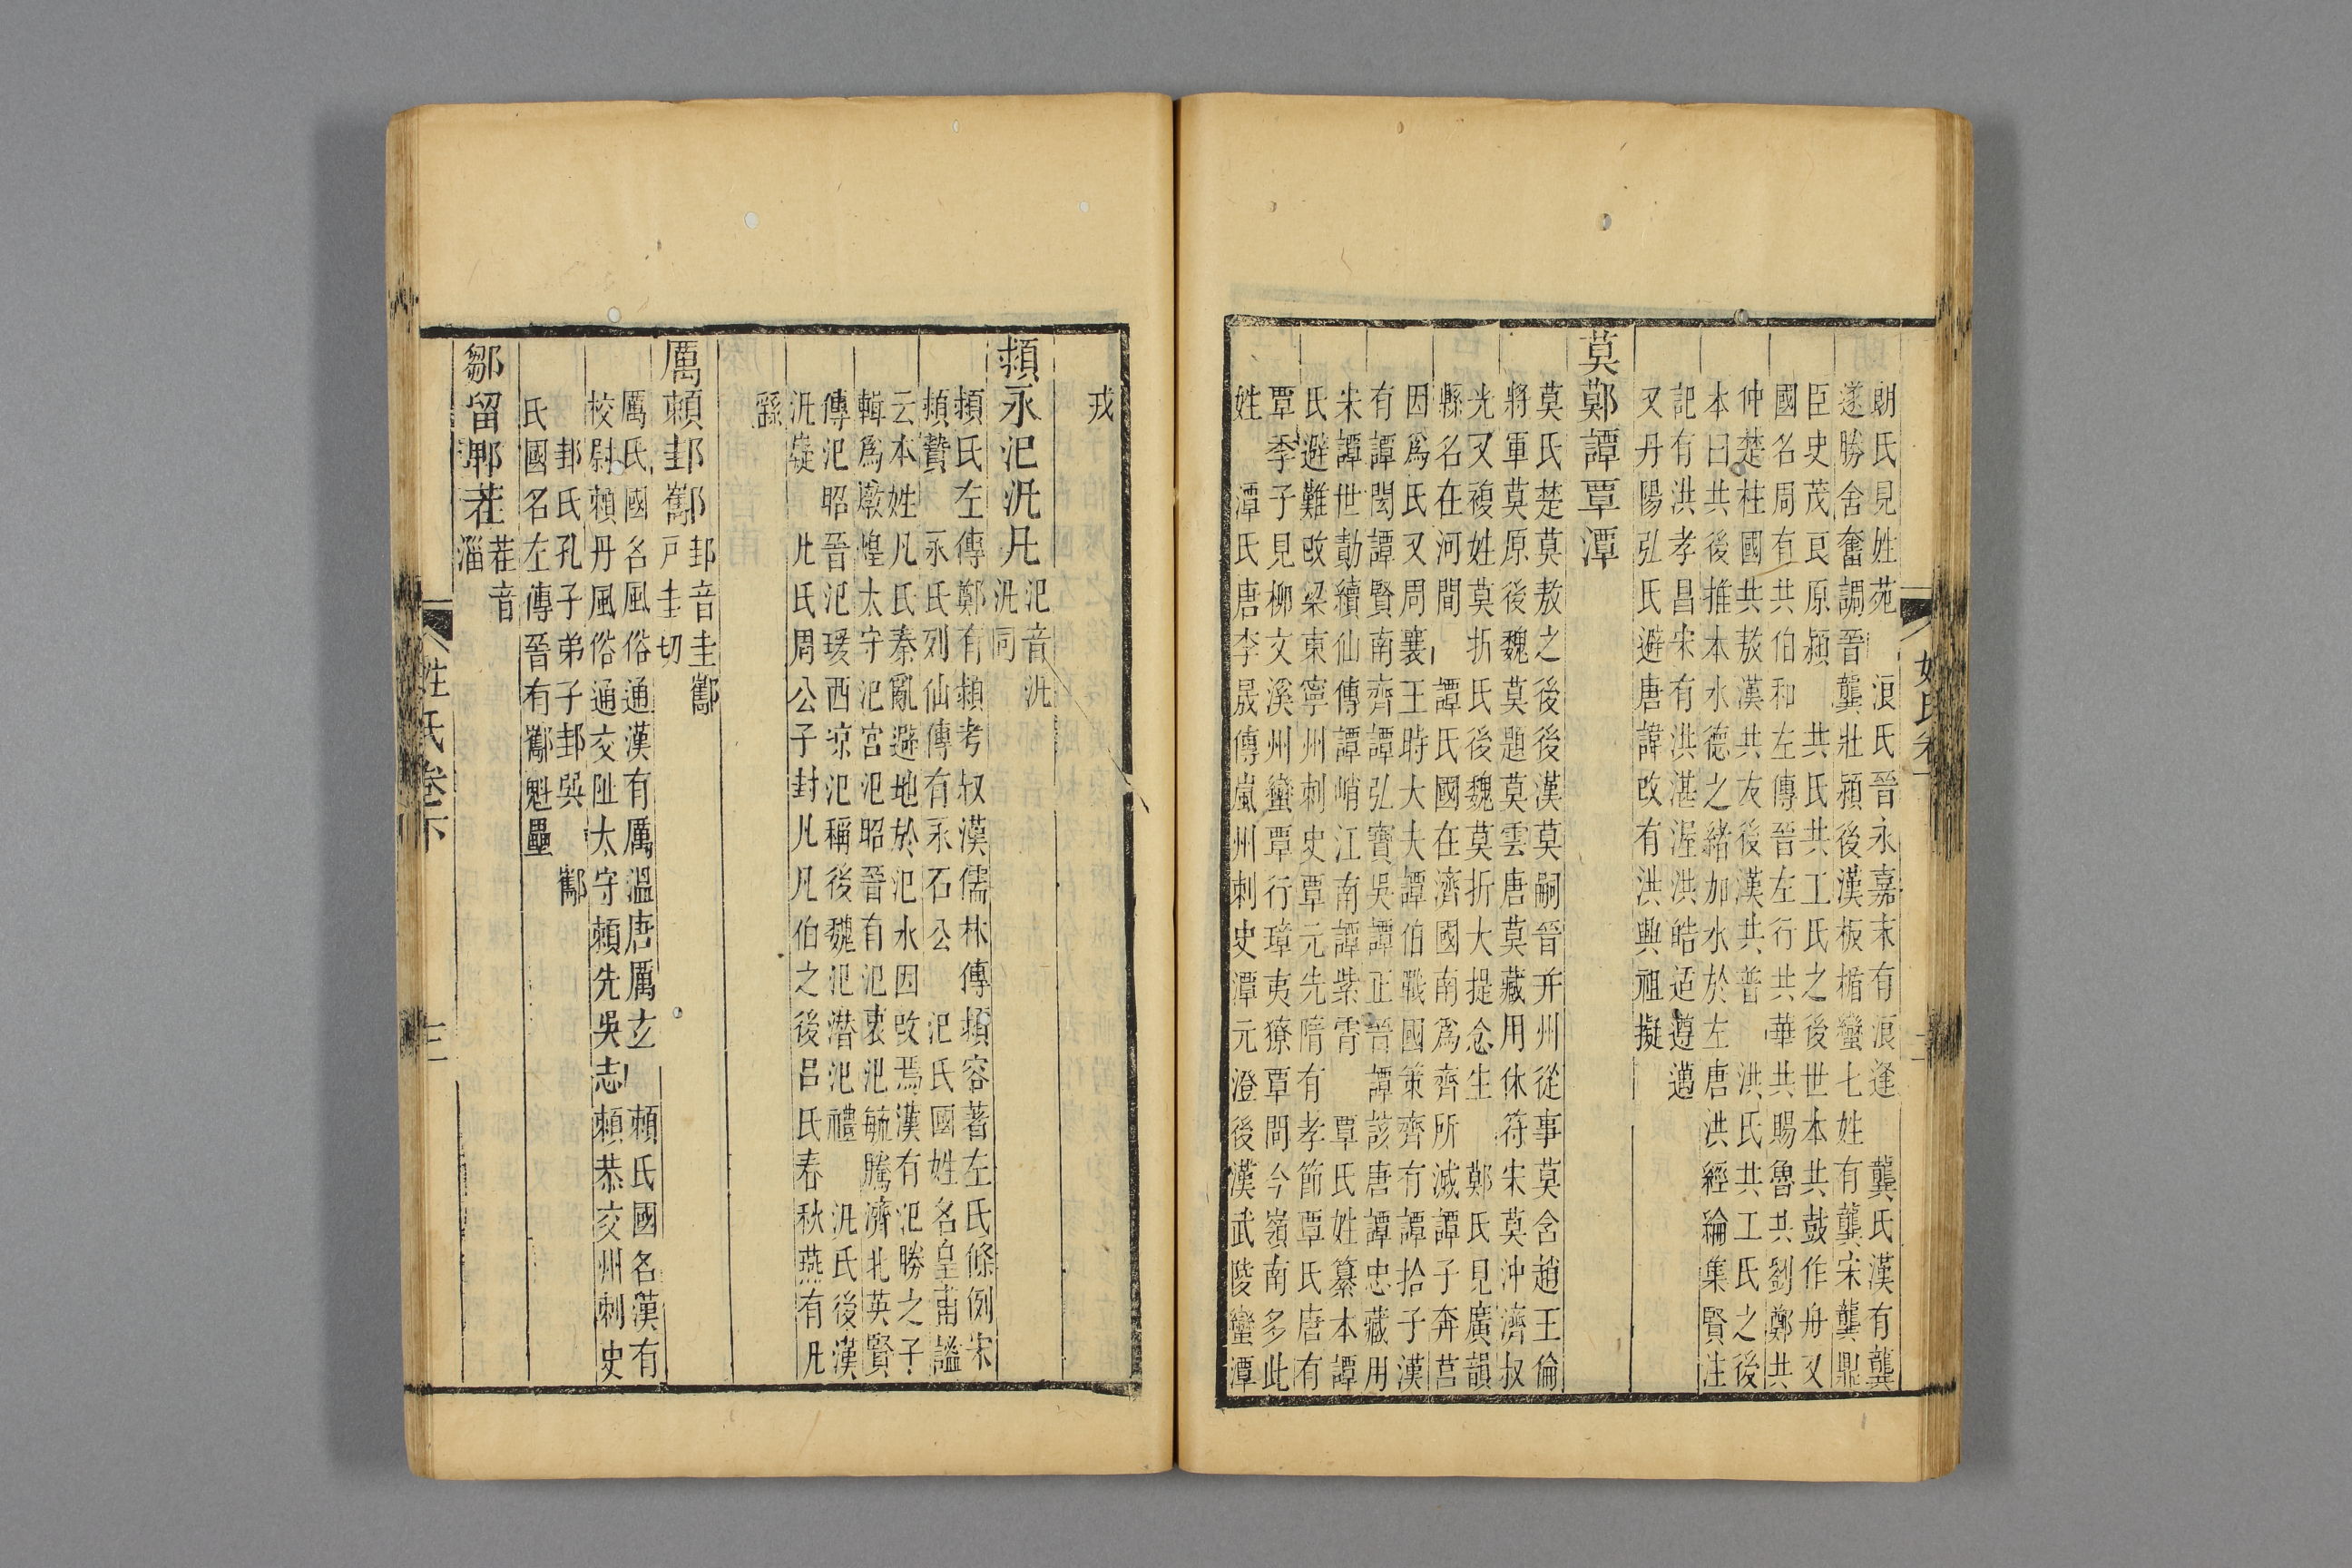 朗氏見姓苑　浪氏晉永嘉末有浪逢　龔氏漢有龔
遂勝舍奮調晉龔壯潁後漢板楯蠻七姓有龔宋龔鼎
臣史茂良原潁　共氏共工氏之後世本共鼓作舟又
國名周有共伯和左傳晉左行共華共賜魯共劉鄭共
仲楚柱國共敖漢共友後漢共普　洪氏共工氏之後
本曰共後推本水德之緒加水於左唐洪經綸集賢注
記有洪孝昌宋有洪湛渥洪皓适遵邁
又丹陽弘氏避唐諱改有洪興祖擬
莫鄭譚覃潭
莫氏楚莫敖之後後漢莫嗣晉并州從事莫含趙王倫
將軍莫原後魏莫題莫雲唐莫藏用休符宋莫沖濟叔
光又複姓莫折氏後魏莫折大提念生　鄭氏見廣韻
縣名在河間　譚氏國在濟國南為齊所滅譚子奔莒
因為氏又周襄王時大夫譚伯戰國策齊有譚拾子漢
有譚閎譚賢南齊譚弘寶吳譚正晉譚該唐譚忠藏用
朱譚世勣續仙傳譚峭江南譚紫霄　覃氏姓纂本譚
氏避難改梁東寧州刺史覃元先隋有孝節覃氏唐有
覃季子見柳文溪州蠻覃行璋夷獠覃問今嶺南多此
姓　潭氏唐李晟傳嵐州刺史潭元澄後漢武陵蠻潭
姓氏卷
戎
潁永氾汎凡
氾音汎
汎同
潁氏左傳鄭有潁考叔漢儒林傳潁容著左氏條例宋
潁贄　永氏列仙傳有永石公　氾氏國姓名皇甫謐
云本姓凡氏秦亂避地於氾水因改焉漢有氾勝之子
輯為燉煌太守氾宮氾昭晉有氾衷氾毓騰濟北英賢
傳氾昭晉氾瑗西凉氾稱後魏氾潛氾禮　汎氏後漢
汎嶷　凡氏周公子封凡凡伯之後呂氏春秋燕有凡
繇
厲賴邽酅
邽音圭酅
戶圭切
厲氏國名風俗通漢有厲溫唐厲玄　賴氏國名漢有
校尉賴丹風俗通交阯太守賴先吳志賴恭交州刺史
邽氏孔子弟子邽巽　酅
氏國名左傳晉有酅魁壘
鄒留鄆茬
茬音
淄
姓氏卷下
三